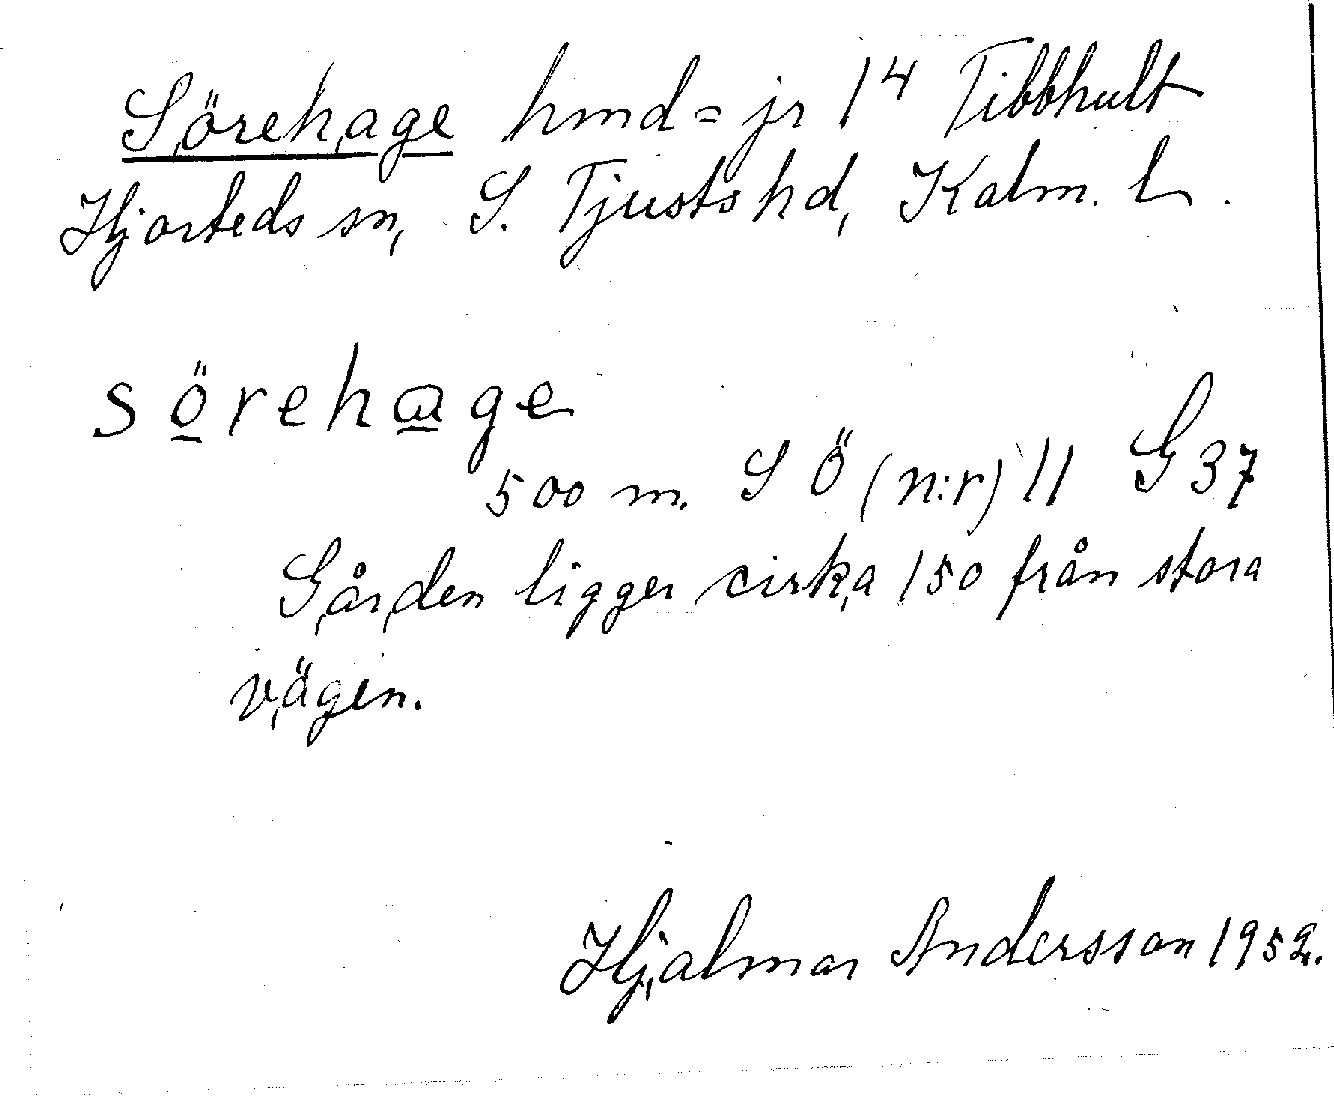 Sörehage hmd=jr 1⁴ Tibbhult
Hjorteds sn, S. Tjusts hd, Kalm. l.
sörehage
500 m. S Ö (n:r) 11 G 37
Gården ligger cirka 150 från stora
vägen.
Hjalmar Andersson 1952.